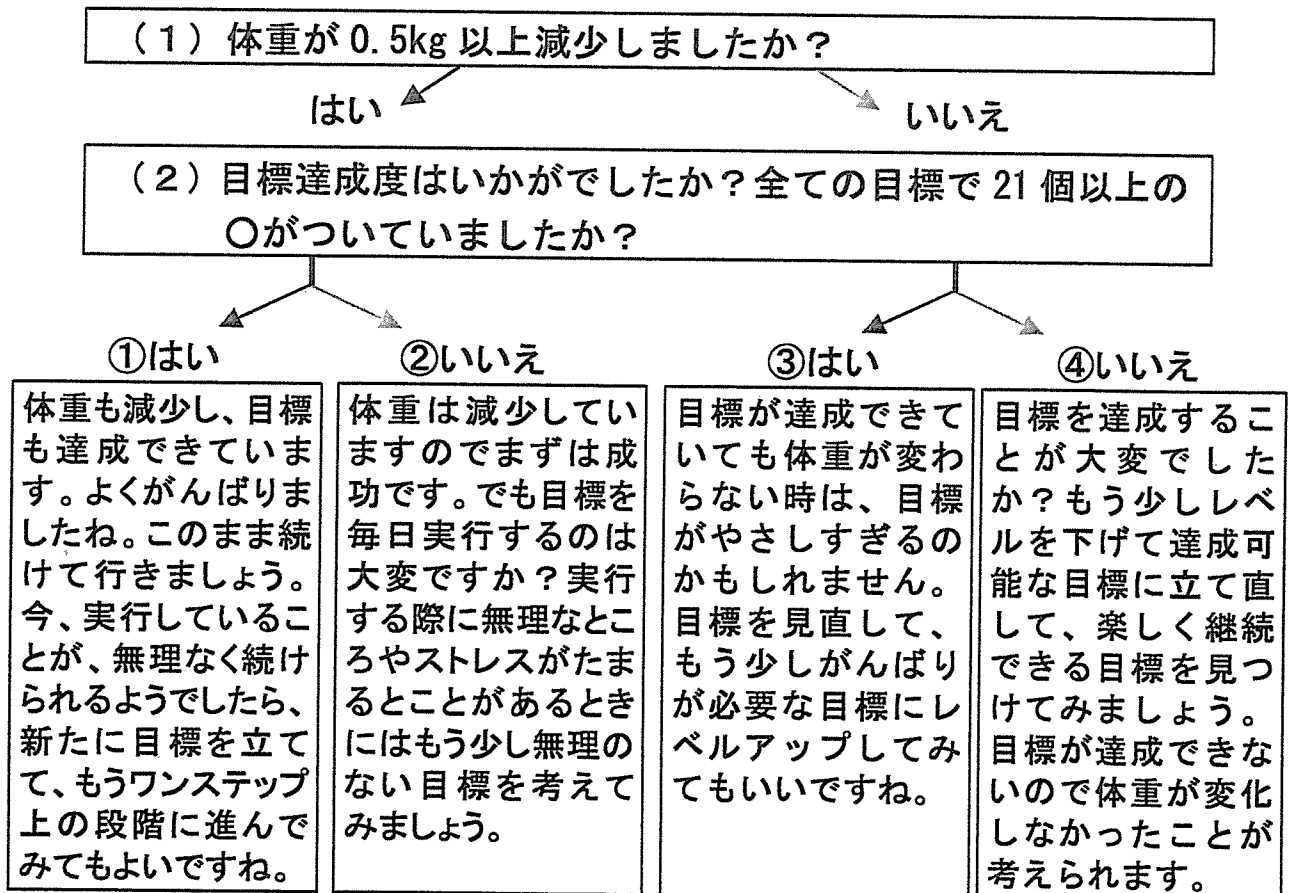 （1）体重が0.5kg以上減少しましたか？
はい
いいえ
（2）目標達成度はいかがでしたか？全ての目標で21個以上の
〇がついていましたか？
①はい
②いいえ
③はい
④いいえ
体重も減少し、目標
も達成できていま
す。よくがんばりま
したね。このまま続
けて行きましょう。
今、実行しているこ
とが、無理なく続け
られるようでしたら、
新たに目標を立て
て、もうワンステップ
上の段階に進んで
みてもよいですね。
体重は減少してい
ますのでまずは成
功です。でも目標を
毎日実行するのは
大変ですか？実行
する際に無理なとこ
ろやストレスがたま
るとことがあるとき
にはもう少し無理の
ない目標を考えて
みましょう。
目標が達成できて
いても体重が変わ
らない時は、目標
がやさしすぎるの
かもしれません。
目標を見直して、
もう少しがんばり
が必要な目標にレ
ベルアップしてみ
てもいいですね。
目標を達成するこ
とが大変でした
か？もう少しレベ
ルを下げて達成可
能な目標に立て直
して、楽しく継続
できる目標を見つ
けてみましょう。
目標が達成できな
いので体重が変化
しなかったことが
考えられます。